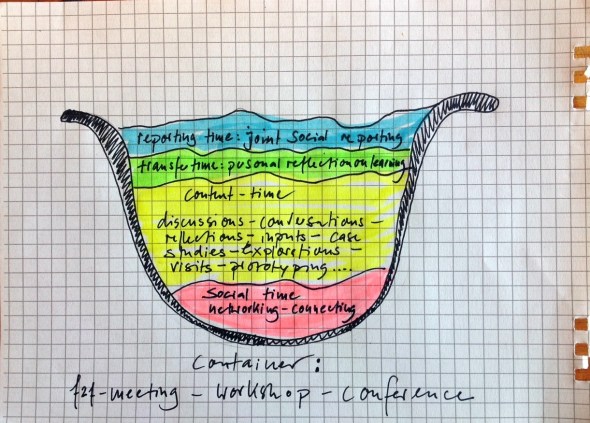 reporting time: joint social reporting
transfer time: personal reflection on learning
content-time
discussions - conversations -
reflections - inputs - case
studies - explorations -
visits - prototyping ....
Social time
networking - connecting
Container:
f2f-meeting - workshop - conference